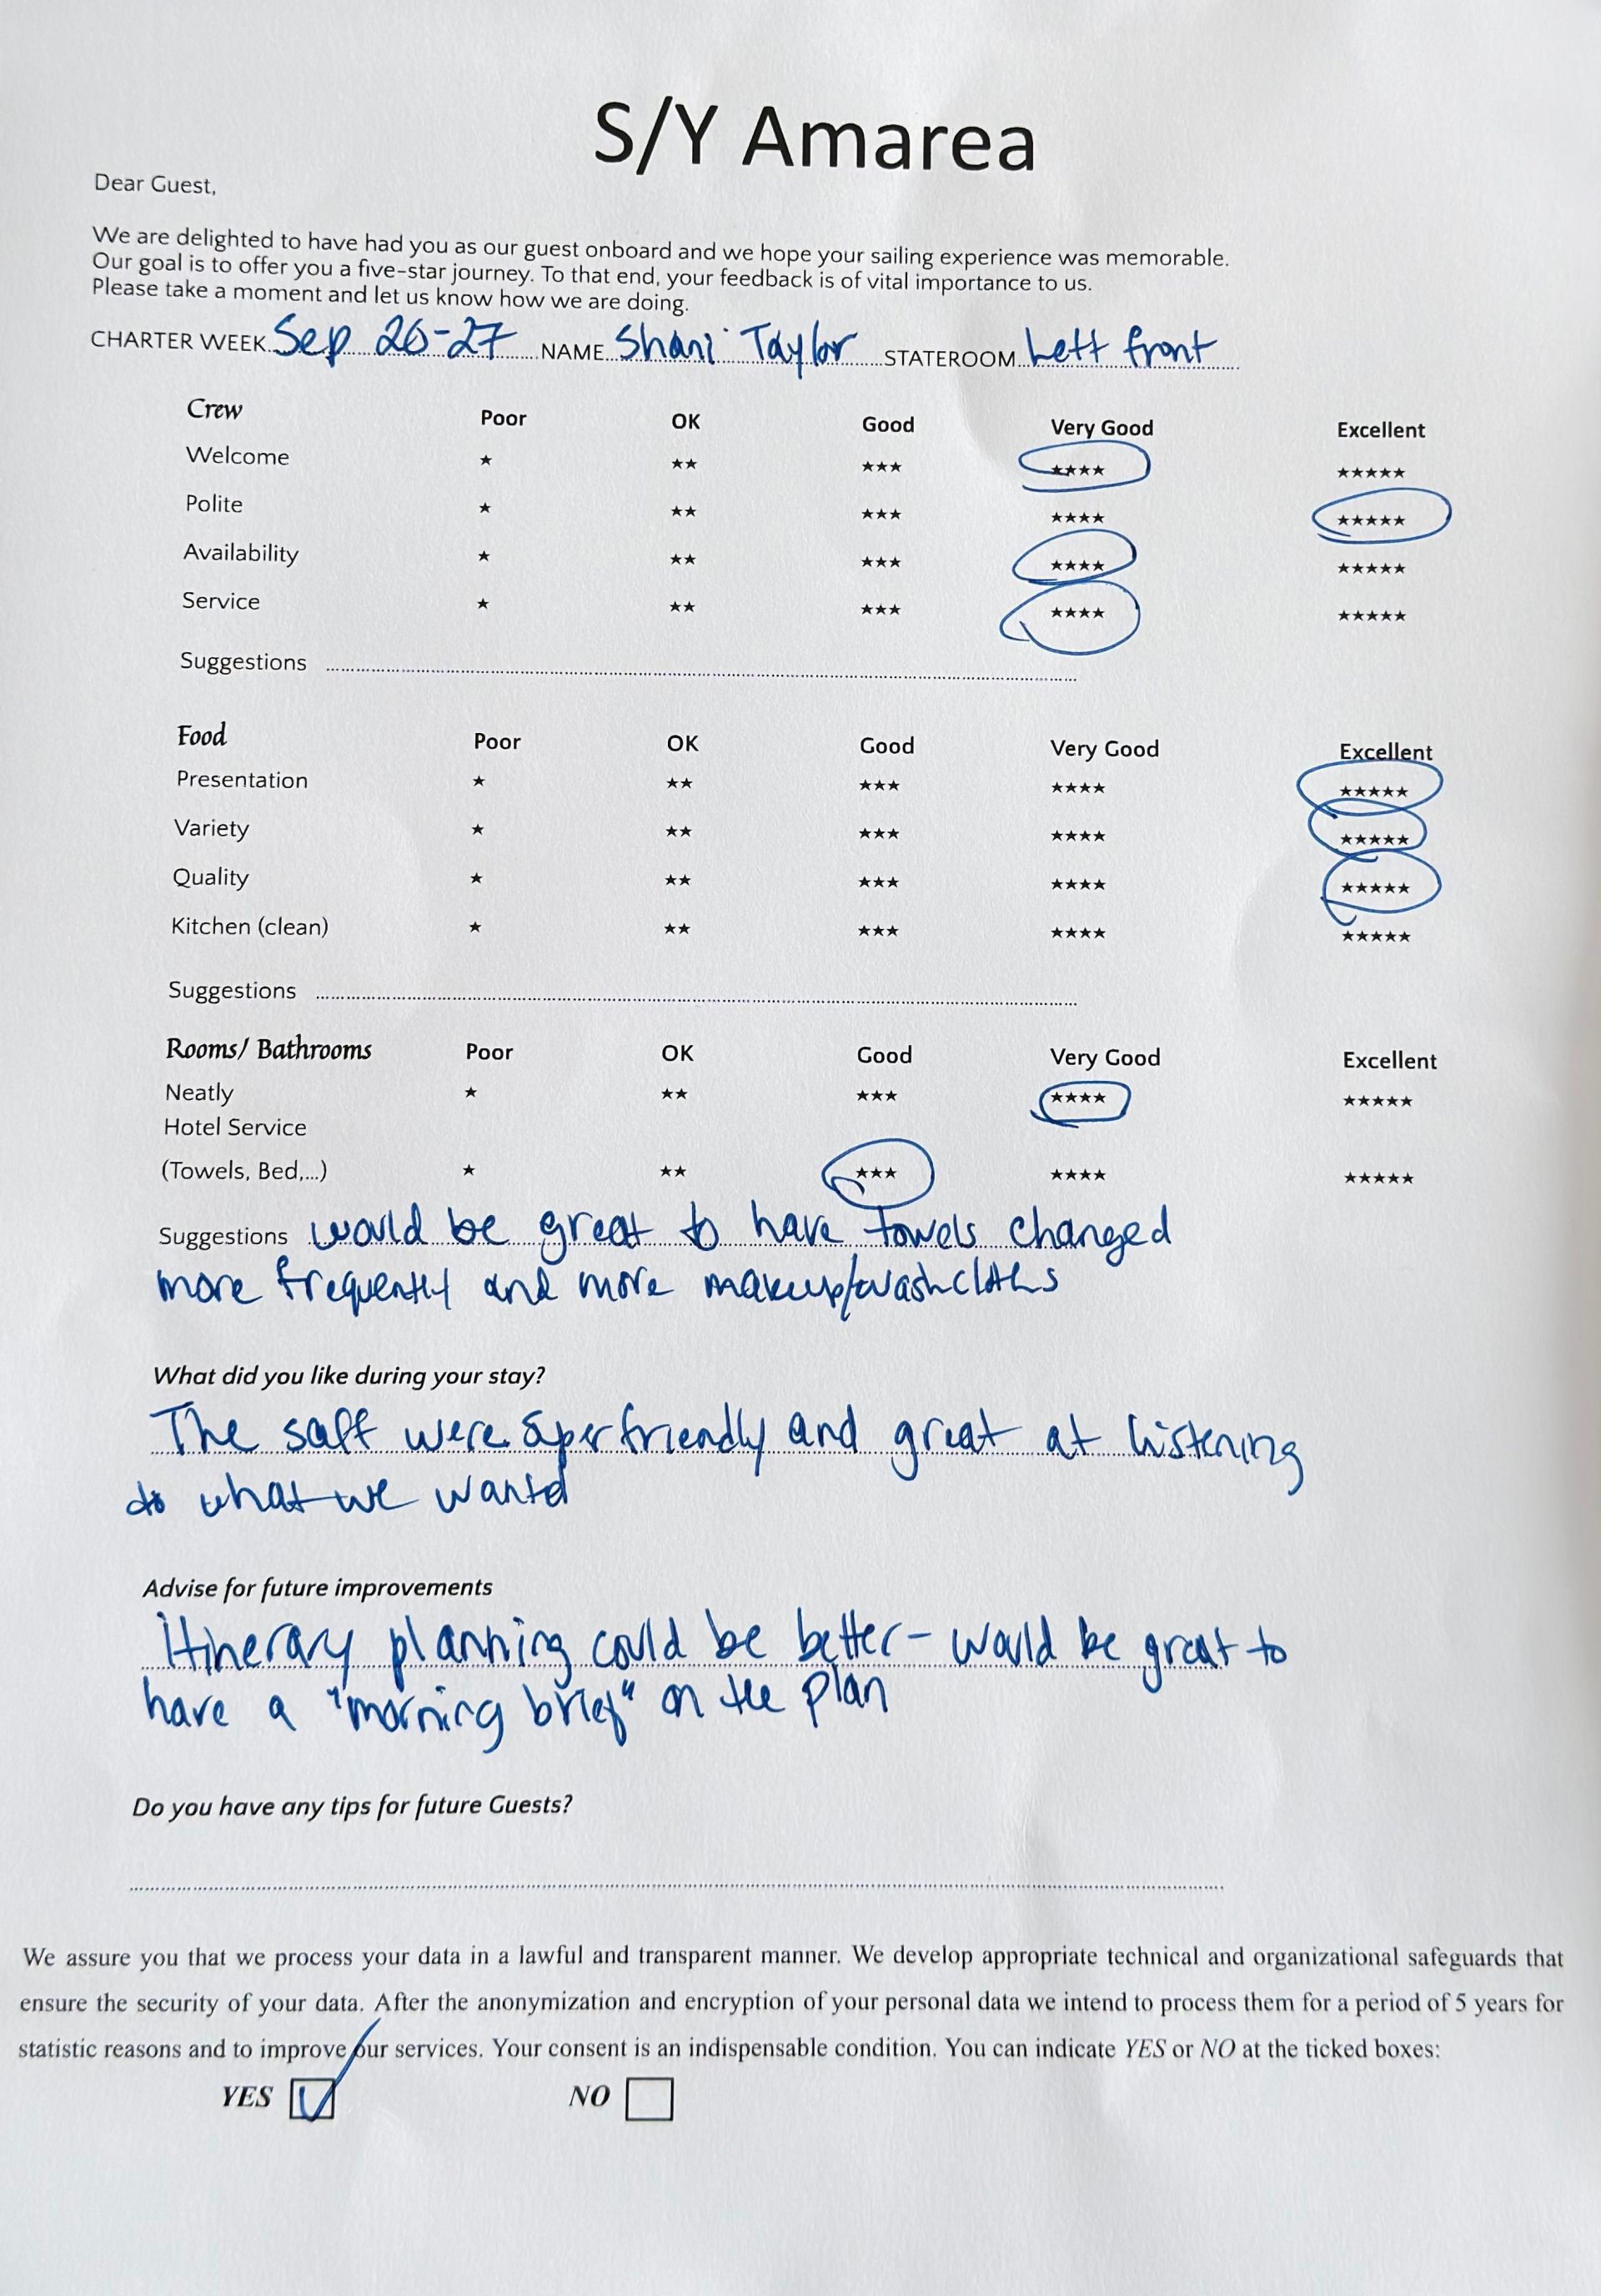 S/Y Amarea
Dear Guest,
We are delighted to have had you as our guest onboard and we hope your sailing experience was memorable.
Our goal is to offer you a five-star journey. To that end, your feedback is of vital importance to us.
Please take a moment and let us know how we are doing.
CHARTER WEEK Sep 20-27 NAME Shani Taylor STATEROOM Left front
Crew Poor OK Good Very Good Excellent
Welcome ★ ★★ ★★★ ★★★★ ★★★★★
Polite ★ ★★ ★★★ ★★★★ ★★★★★
Availability ★ ★★ ★★★ ★★★★ ★★★★★
Service ★ ★★ ★★★ ★★★★ ★★★★★
Suggestions
Food Poor OK Good Very Good Excellent
Presentation ★ ★★ ★★★ ★★★★ ★★★★★
Variety ★ ★★ ★★★ ★★★★ ★★★★★
Quality ★ ★★ ★★★ ★★★★ ★★★★★
Kitchen (clean) ★ ★★ ★★★ ★★★★ ★★★★★
Suggestions
Rooms/ Bathrooms Poor OK Good Very Good Excellent
Neatly ★ ★★ ★★★ ★★★★ ★★★★★
Hotel Service
(Towels, Bed,...) ★ ★★ ★★★ ★★★★ ★★★★★
Suggestions would be great to have towels changed
more frequently and more makeup/washcloths
What did you like during your stay?
The saff were super friendly and great at listening
to what we wantd
Advise for future improvements
Itinerary planning could be better - would be great to
have a "morning brief" on the plan
Do you have any tips for future Guests?
We assure you that we process your data in a lawful and transparent manner. We develop appropriate technical and organizational safeguards that
ensure the security of your data. After the anonymization and encryption of your personal data we intend to process them for a period of 5 years for
statistic reasons and to improve our services. Your consent is an indispensable condition. You can indicate YES or NO at the ticked boxes:
YES NO